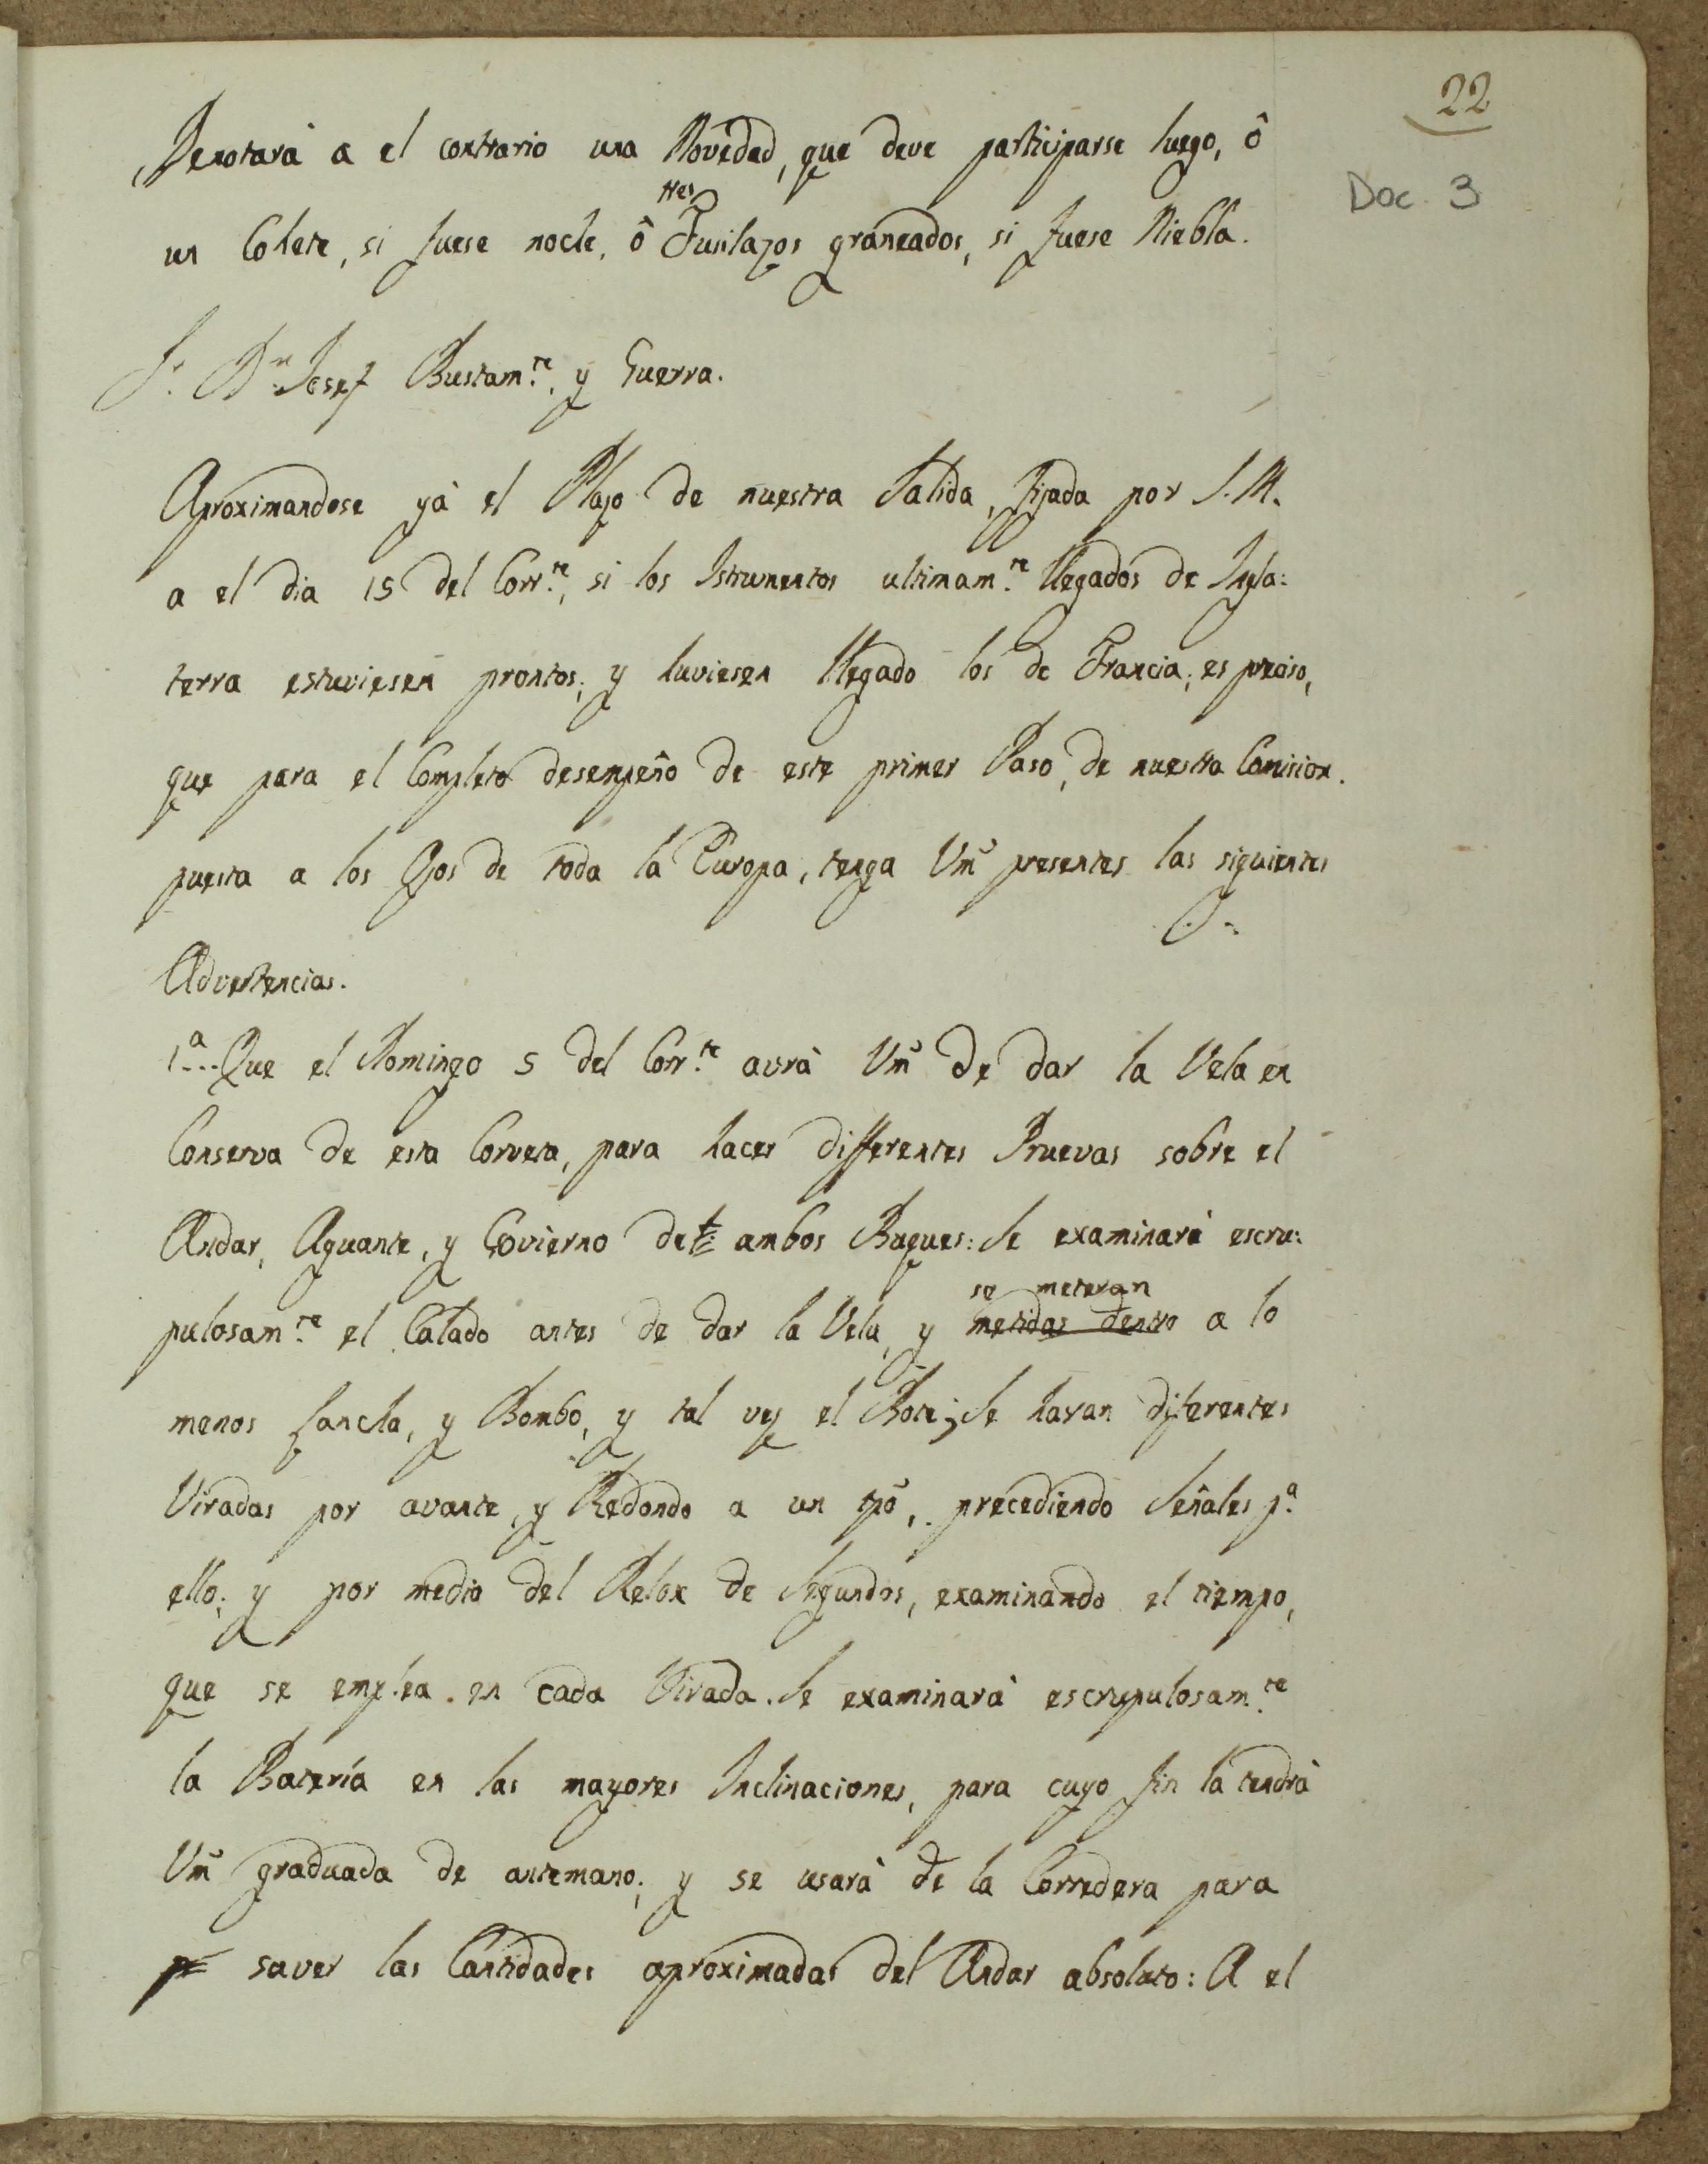 22
Doc. 3
Denotarà a el contrario una Novedad, que deve participarse luego, ô
tres
un Cohete, si fuese noche, ô Fusilazos graneados, si fuese Niebla.
Sr. Dn. Josef Bustam.te y Guerra.
Aproximandose yà el Plazo de nuestra Salida, fijada por S. M.
a el dia 15 del Corr.te, si los Istrumentos ultimam.te llegados de Ingla:
terra estuviesen prontos; y huviesen llegado los de Francia; es preciso,
que para el Completo desempeño de este primer Paso, de nuestra Comision.
puesta a los Ojos de toda la Europa, tenga Vm presentes las siguientes
Advertencias.
1.a... Que el Domingo 5 del Corr.te avrà Vm de dar la Vela en
Conserva de esta Corveta, para hacer differentes Pruevas sobre el
Andar, Aguante, y Govierno de ambos Buques: Se examinarà escru:
se meteran
pulosam.te el Calado antes de dar la Vela, y metidas dentro a lo
menos Lancha, y Bombo, y tal vez el Bote; Se haran diferentes
Viradas por avante, y Redondo a un tpô, precediendo Señales p.a
ello; y por medio del Relox de Segundos, examinando el tiempo,
que se emplea en cada Virada. Se examinarà escrupulosam.te
la Batería en las mayores Inclinaciones, para cuyo fin la tendrà
Vm graduada de antemano; y se usarà de la Corredera para
saver las Cantidades aproximadas del Andar absoluto: A el